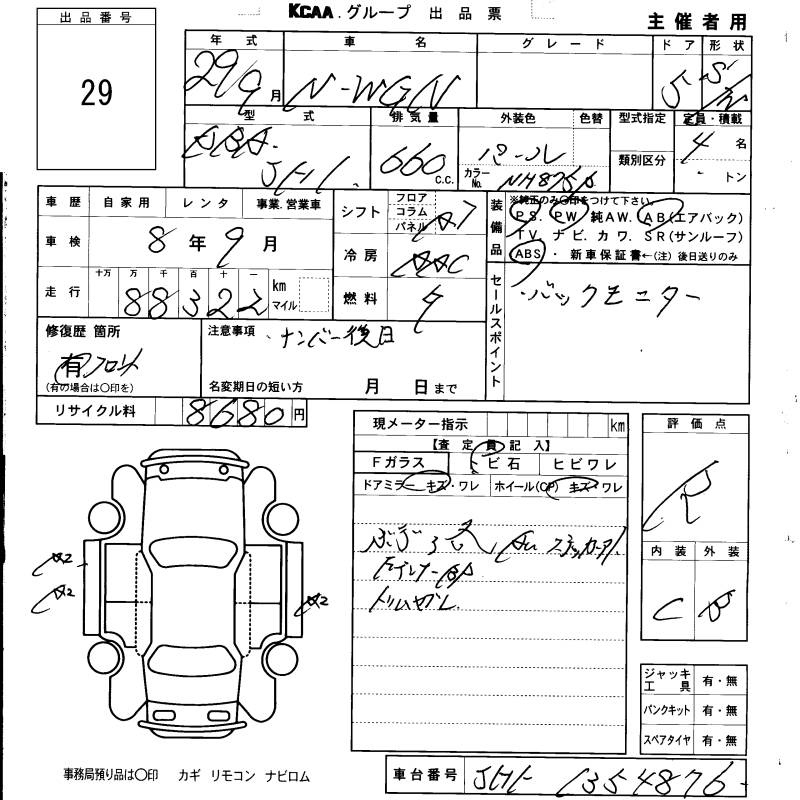 KCAA.グループ 出品票
主催者用
出品番号
29
年式 車名 グレード ドア 形状
29 9月 N-WGN 5
型式 排気量 外装色 色替 型式指定 定員・積載
DBA- JH1 660 c.c. パール カラーNo. NH875P 類別区分 4名 トン
車歴 自家用 レンタ 事業.営業車
車検 8年9月
走行 十万 万 千 百 十 一
88322 km マイル
シフト フロア コラム パネル A7
冷房 AAC
燃料
装備品 ※純正のみ〇印をつけて下さい。
PS. PW 純AW. AB(エアバック)
TV. ナビ. カワ. SR(サンルーフ)
ABS・新車保証書←(注)後日送りのみ
セールスポイント
・バックモニター
修復歴 箇所
有 フロント
(有の場合は〇印を)
注意事項 ・ナンバー後日
名変期日の短い方 月 日まで
リサイクル料 8680円
現メーター指示 km
【査定員記入】
Fガラス トビ石 ヒビワレ
ドアミラー キズ・ワレ ホイール(CP) キズ・ワレ
評価点
R
内装 外装
C B
A2
A2
A2
ジャッキ工具 有・無
パンクキット 有・無
スペアタイヤ 有・無
事務局預り品は〇印 カギ リモコン ナビロム
車台番号 JH1- 1354876